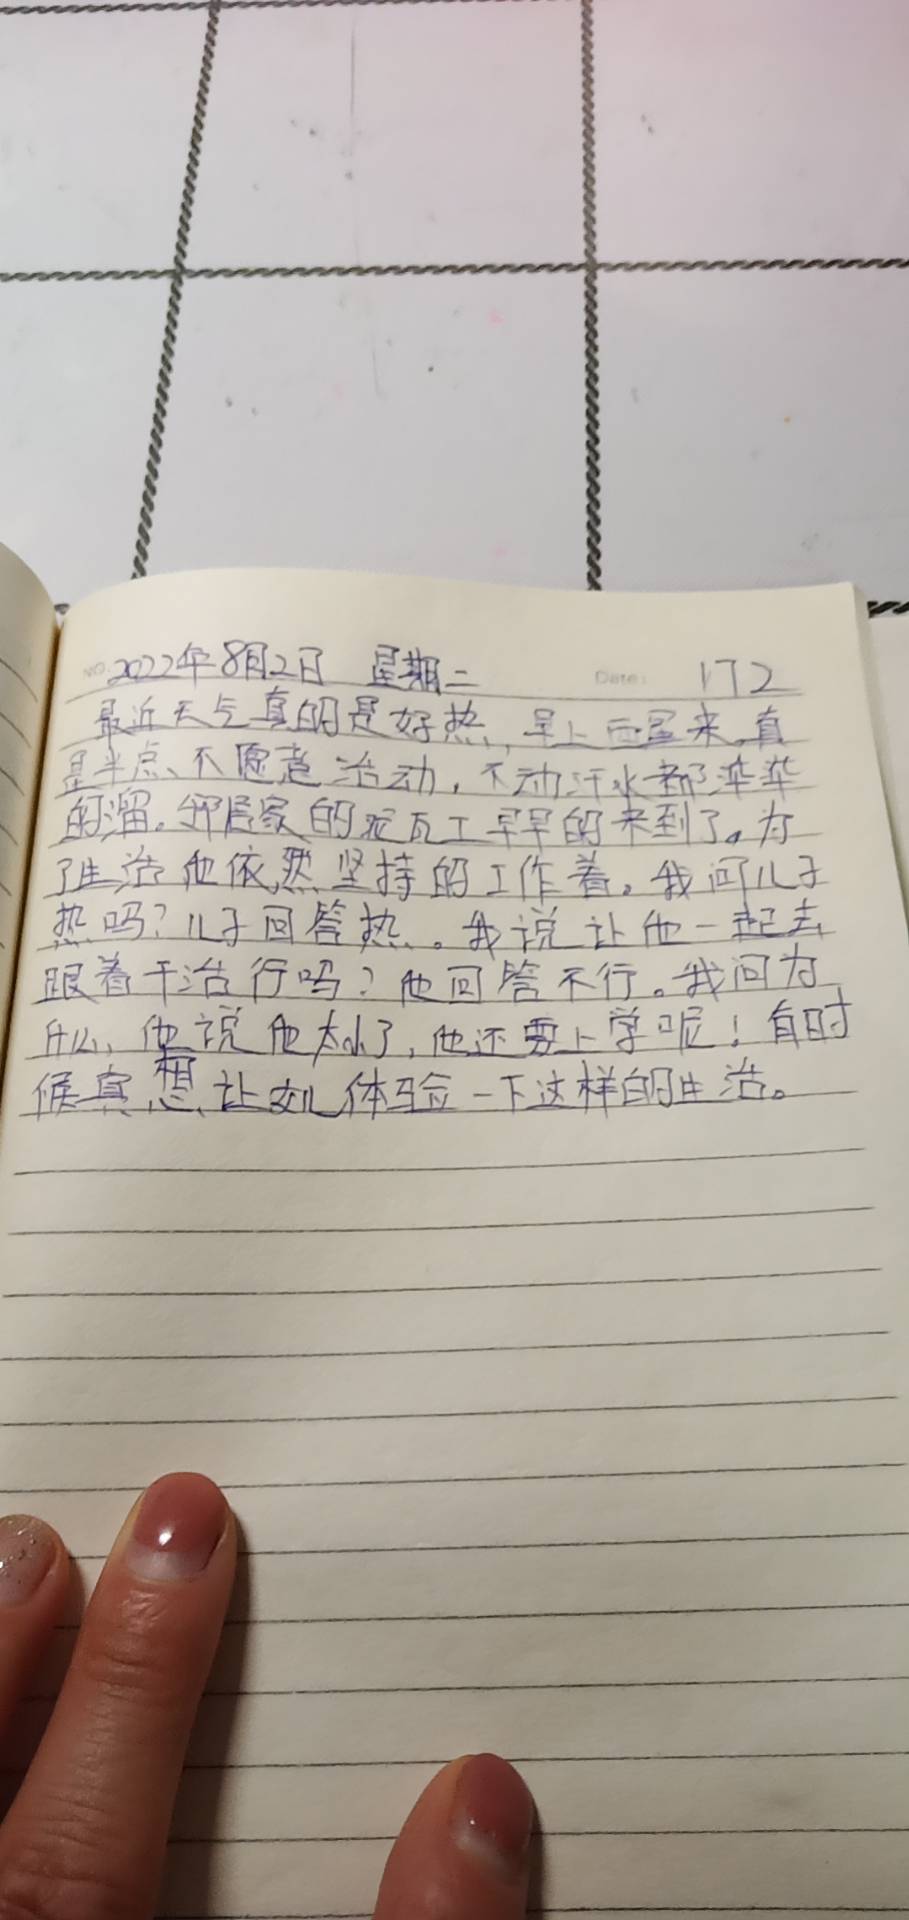 NO. 2022年8月2日 星期二 Date: 172
最近天气真的是好热,早上而屋来,真
是半点、不愿意活动,不动汗水都渁渁
的溜。邻居家的泥瓦工早早的来到了。为
了生活他依然坚持的工作着。我问儿子
热吗?儿子回答热。我说让他一起去
跟着干活行吗?他回答不行。我问为
什么,他说他太小了,他还要上学呢!有时
候真想让女儿体验一下这样的生活。